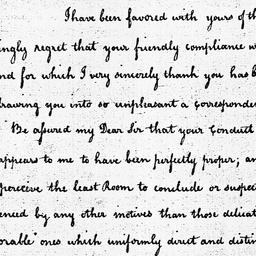 I have been favored with yours of th
ingly regret that your friendly compliance w
nd for which I very sincerely thank you has b
drawing you into so unpleasant a corresponde
Be assured my Dear Sir that your Conduct
appears to me to have been perfectly proper, an
perceive the least Room to conclude or suspec
enced by any other motives than those delicat
orable ones which uniformly direct and distin